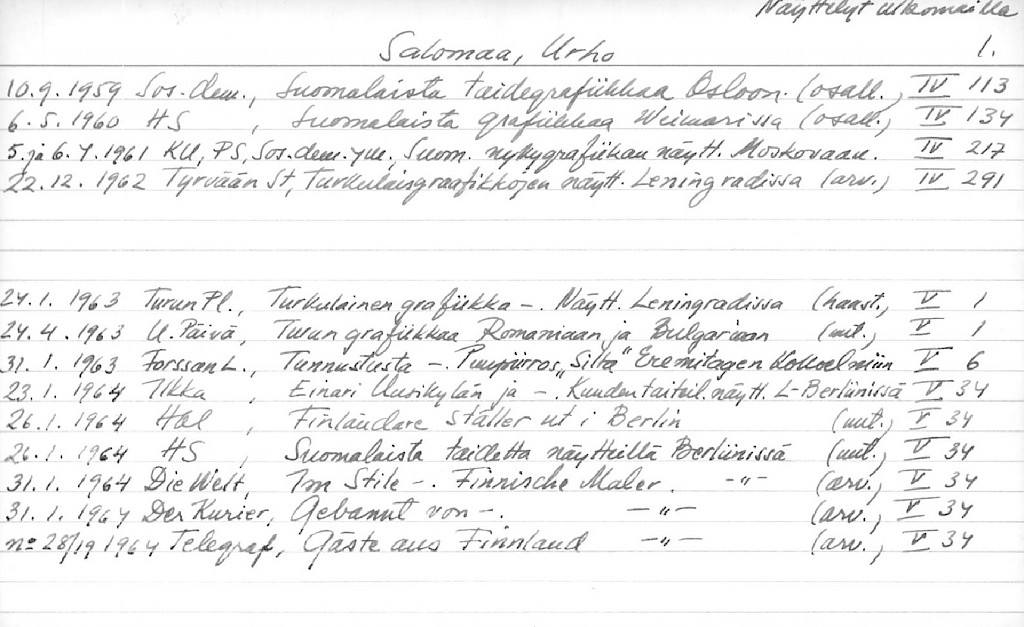 Näyttelyt ulkomailla
Salomaa, Urho 1.
10.9.1959 Sos.dem., Suomalaista taidegrafiikkaa Osloon. (osall., IV 113
6.5.1960 HS, Suomalaista grafiikkaa Weimarissa (osall., IV 134
5. ja 6.7.1961 KU, PS, Sos.dem. ym., Suom. nykygrafiikan näytt. Moskovaan. IV 217
22.12.1962 Tyrvään St, Turkulaisgraafikkojen näytt. Leningradissa (arv.) IV 291
24.1.1963 Turun Pl., Turkulainen grafiikka -. Näytt. Leningradissa (haast., V 1
24.4.1963 U. Päivä, Turun grafiikkaa Romaniaan ja Bulgariaan (uut., V 1
31.1.1963 Forssan L., Tunnustusta -. Puupiirros „Silta" Eremitagen kokoelmiin V 6
23.1.1964 Ilkka, Einari Uusikylän ja -. Kuuden taiteil. näytt. L-Berliinissä V 34
26.1.1964 Hbl, Finländare ställer ut i Berlin (uut., V 34
26.1.1964 HS, Suomalaista taidetta näytteillä Berliinissä (uut., V 34
31.1.1964 Die Welt, Im Stile -. Finnische Maler. -"- (arv., V 34
31.1.1964 Der Kurier, Gebannt von -. -"- (arv., V 34
no 28/19 1964 Telegraf, Gäste aus Finnland -"- (arv., V 34